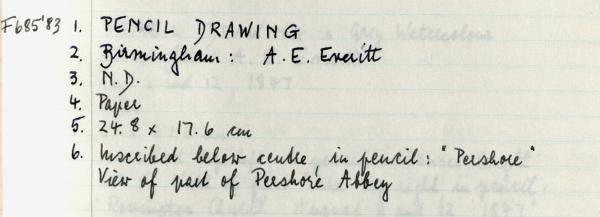 F685'83 1. PENCIL DRAWING
2. Birmingham: A. E. Everitt
3. N.D.
4. Paper
5. 24.8 x 17.6 cm
6. Inscribed below centre, in pencil: "Pershore"
View of part of Pershore Abbey